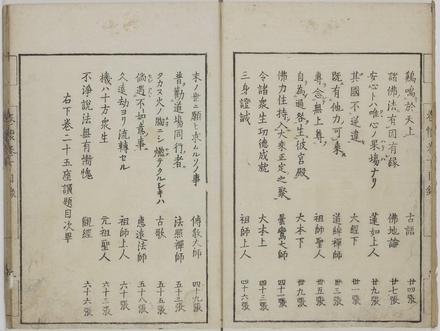 鷄鳴於天上 古語 廿四張
諸佛法有因有縁 佛地論 廿七張
安心トハ唯心ノ果場ナリ 蓮如上人 廿八張
其國不逆違 大經下 卅一張
既有他力可乘 道綽禪師 卅三張
尊念無上尊 祖師聖人 卅五張
自為過咎生彼宮殿 大本下 卅九張
佛力住持入大乘正定之聚 曇鸞大師 四十一張
令諸衆生功德成就 大本上 四十三張
三身證誠 祖師上人 四十六張
末ノ世ニ願ヲ求ムルソノ事 傅敎大師 四十九張
普勸道場同行者 法照禪師 五十三張
タカズ火ノ胸ニシ燃テクルシキハ 古歌 五十五張
遇不如意事 應遠法師 五十八張
久遠劫ヨリ流轉セル 祖師上人 六十張
機ハ十方衆生 元祖聖人 六十三張
不淨説法無有慚愧 觀經 六十六張
右下卷二十五座讃題目次畢